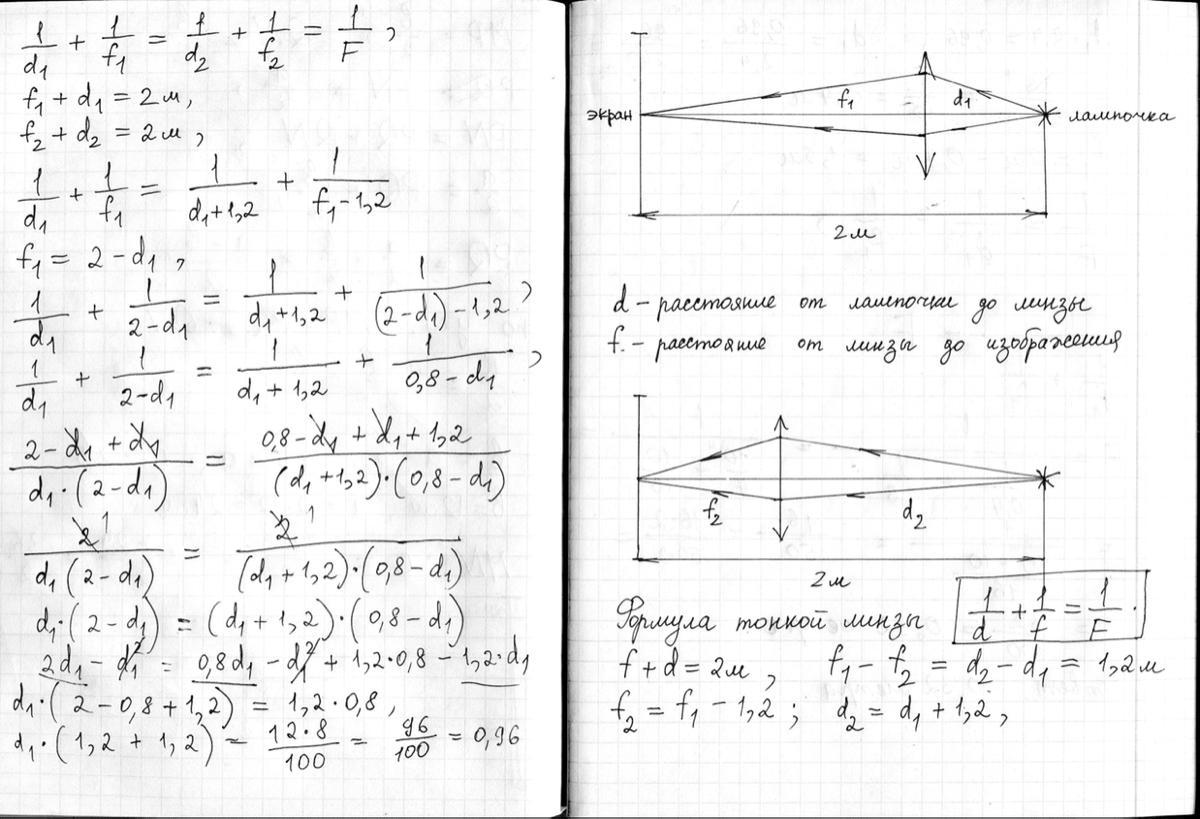 1/d₁ + 1/f₁ = 1/d₂ + 1/f₂ = 1/F ,
f₁ + d₁ = 2м,
f₂ + d₂ = 2м,
1/d₁ + 1/f₁ = 1/(d₁+1,2) + 1/(f₁-1,2)
f₁ = 2 - d₁ ,
1/d₁ + 1/(2-d₁) = 1/(d₁+1,2) + 1/((2-d₁)-1,2) ,
1/d₁ + 1/(2-d₁) = 1/(d₁+1,2) + 1/(0,8-d₁) ,
(2 - d₁ + d₁)/(d₁·(2-d₁)) = (0,8 - d₁ + d₁ + 1,2)/((d₁+1,2)·(0,8-d₁))
2 1/(d₁(2-d₁)) = 2 1/((d₁+1,2)·(0,8-d₁))
d₁·(2-d₁) = (d₁+1,2)·(0,8-d₁)
2d₁ - d₁² = 0,8d₁ - d₁² + 1,2·0,8 - 1,2·d₁
d₁·(2-0,8+1,2) = 1,2·0,8,
d₁·(1,2+1,2) = 12·8/100 = 96/100 = 0,96
f₁ d₁
экран лампочка
2м
d - расстояние от лампочки до линзы
f. - расстояние от линзы до изображения
f₂ d₂
2м
Формула тонкой линзы 1/d + 1/f = 1/F.
f + d = 2м , f₁ - f₂ = d₂ - d₁ = 1,2м
f₂ = f₁ - 1,2 ; d₂ = d₁ + 1,2 ,